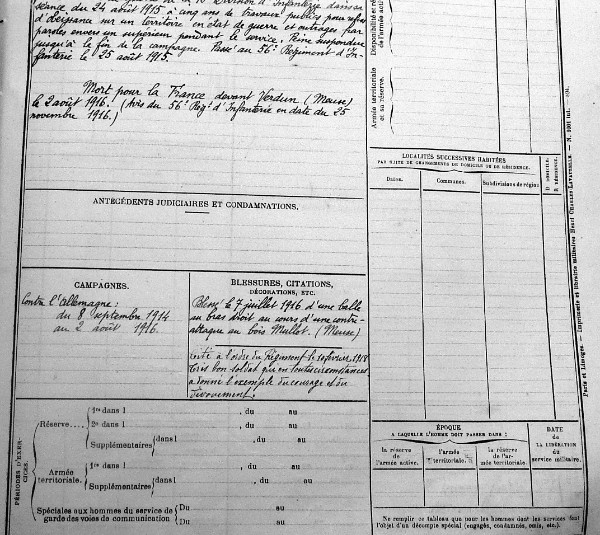 séance du 24 août 1915 à cinq ans de travaux publics pour refus
d'obéissance sur un territoire en état de guerre et outrages par
paroles envers un supérieur pendant le service. Peine suspendue
jusqu'à la fin de la campagne. Passé au 56e Régiment d'In-
fanterie le 25 août 1915.
Mort pour la France devant Verdun (Meuse)
le 2 août 1916. (Avis du 56e Rég. d'Infanterie en date du 25
novembre 1916.)
ANTÉCÉDENTS JUDICIAIRES ET CONDAMNATIONS.
CAMPAGNES.
Contre l'Allemagne :
du 8 septembre 1914
au 2 août 1916.
BLESSURES, CITATIONS,
DÉCORATIONS, ETC.
Blessé le 7 juillet 1916 d'une balle
au bras droit au cours d'une contre-
attaque au bois Mullot. (Meuse)
Cité à l'ordre du Régiment le 10 février 1918
très bon soldat qui en toutes circonstances
a donné l'exemple du courage et du
dévouement.
PÉRIODES D'EXER-
CICES.
Réserve
1re dans l , du au
2e dans l , du au
Supplémentaires dans l , du au
, du au
Armée
territoriale.
1re dans l , du au
Supplémentaires dans l , du au
, du au
Spéciales aux hommes du service de
garde des voies de communication
Du au
Du au
Disponibilité et
réserve
de l'armée active.
Armée territoriale
et sa réserve.
LOCALITÉS SUCCESSIVES HABITÉES
PAR SUITE DE CHANGEMENTS DE DOMICILE OU DE RÉSIDENCE.
Dates.
Communes.
Subdivisions de région
D. DOMICILE.
R. RÉSIDENCE.
ÉPOQUE
A LAQUELLE L'HOMME DOIT PASSER DANS :
la réserve
de
l'armée active.
l'armée
territoriale.
la réserve
de l'ar-
mée territoriale.
DATE
de
LA LIBÉRATION
du
service militaire.
Ne remplir ce tableau que pour les hommes dont les services font
l'objet d'un décompte spécial (engagés, condamnés, omis, etc.).
Paris et Limoges. — Imprimerie et librairie militaires Henri CHARLES-LAVAUZELLE. — N.